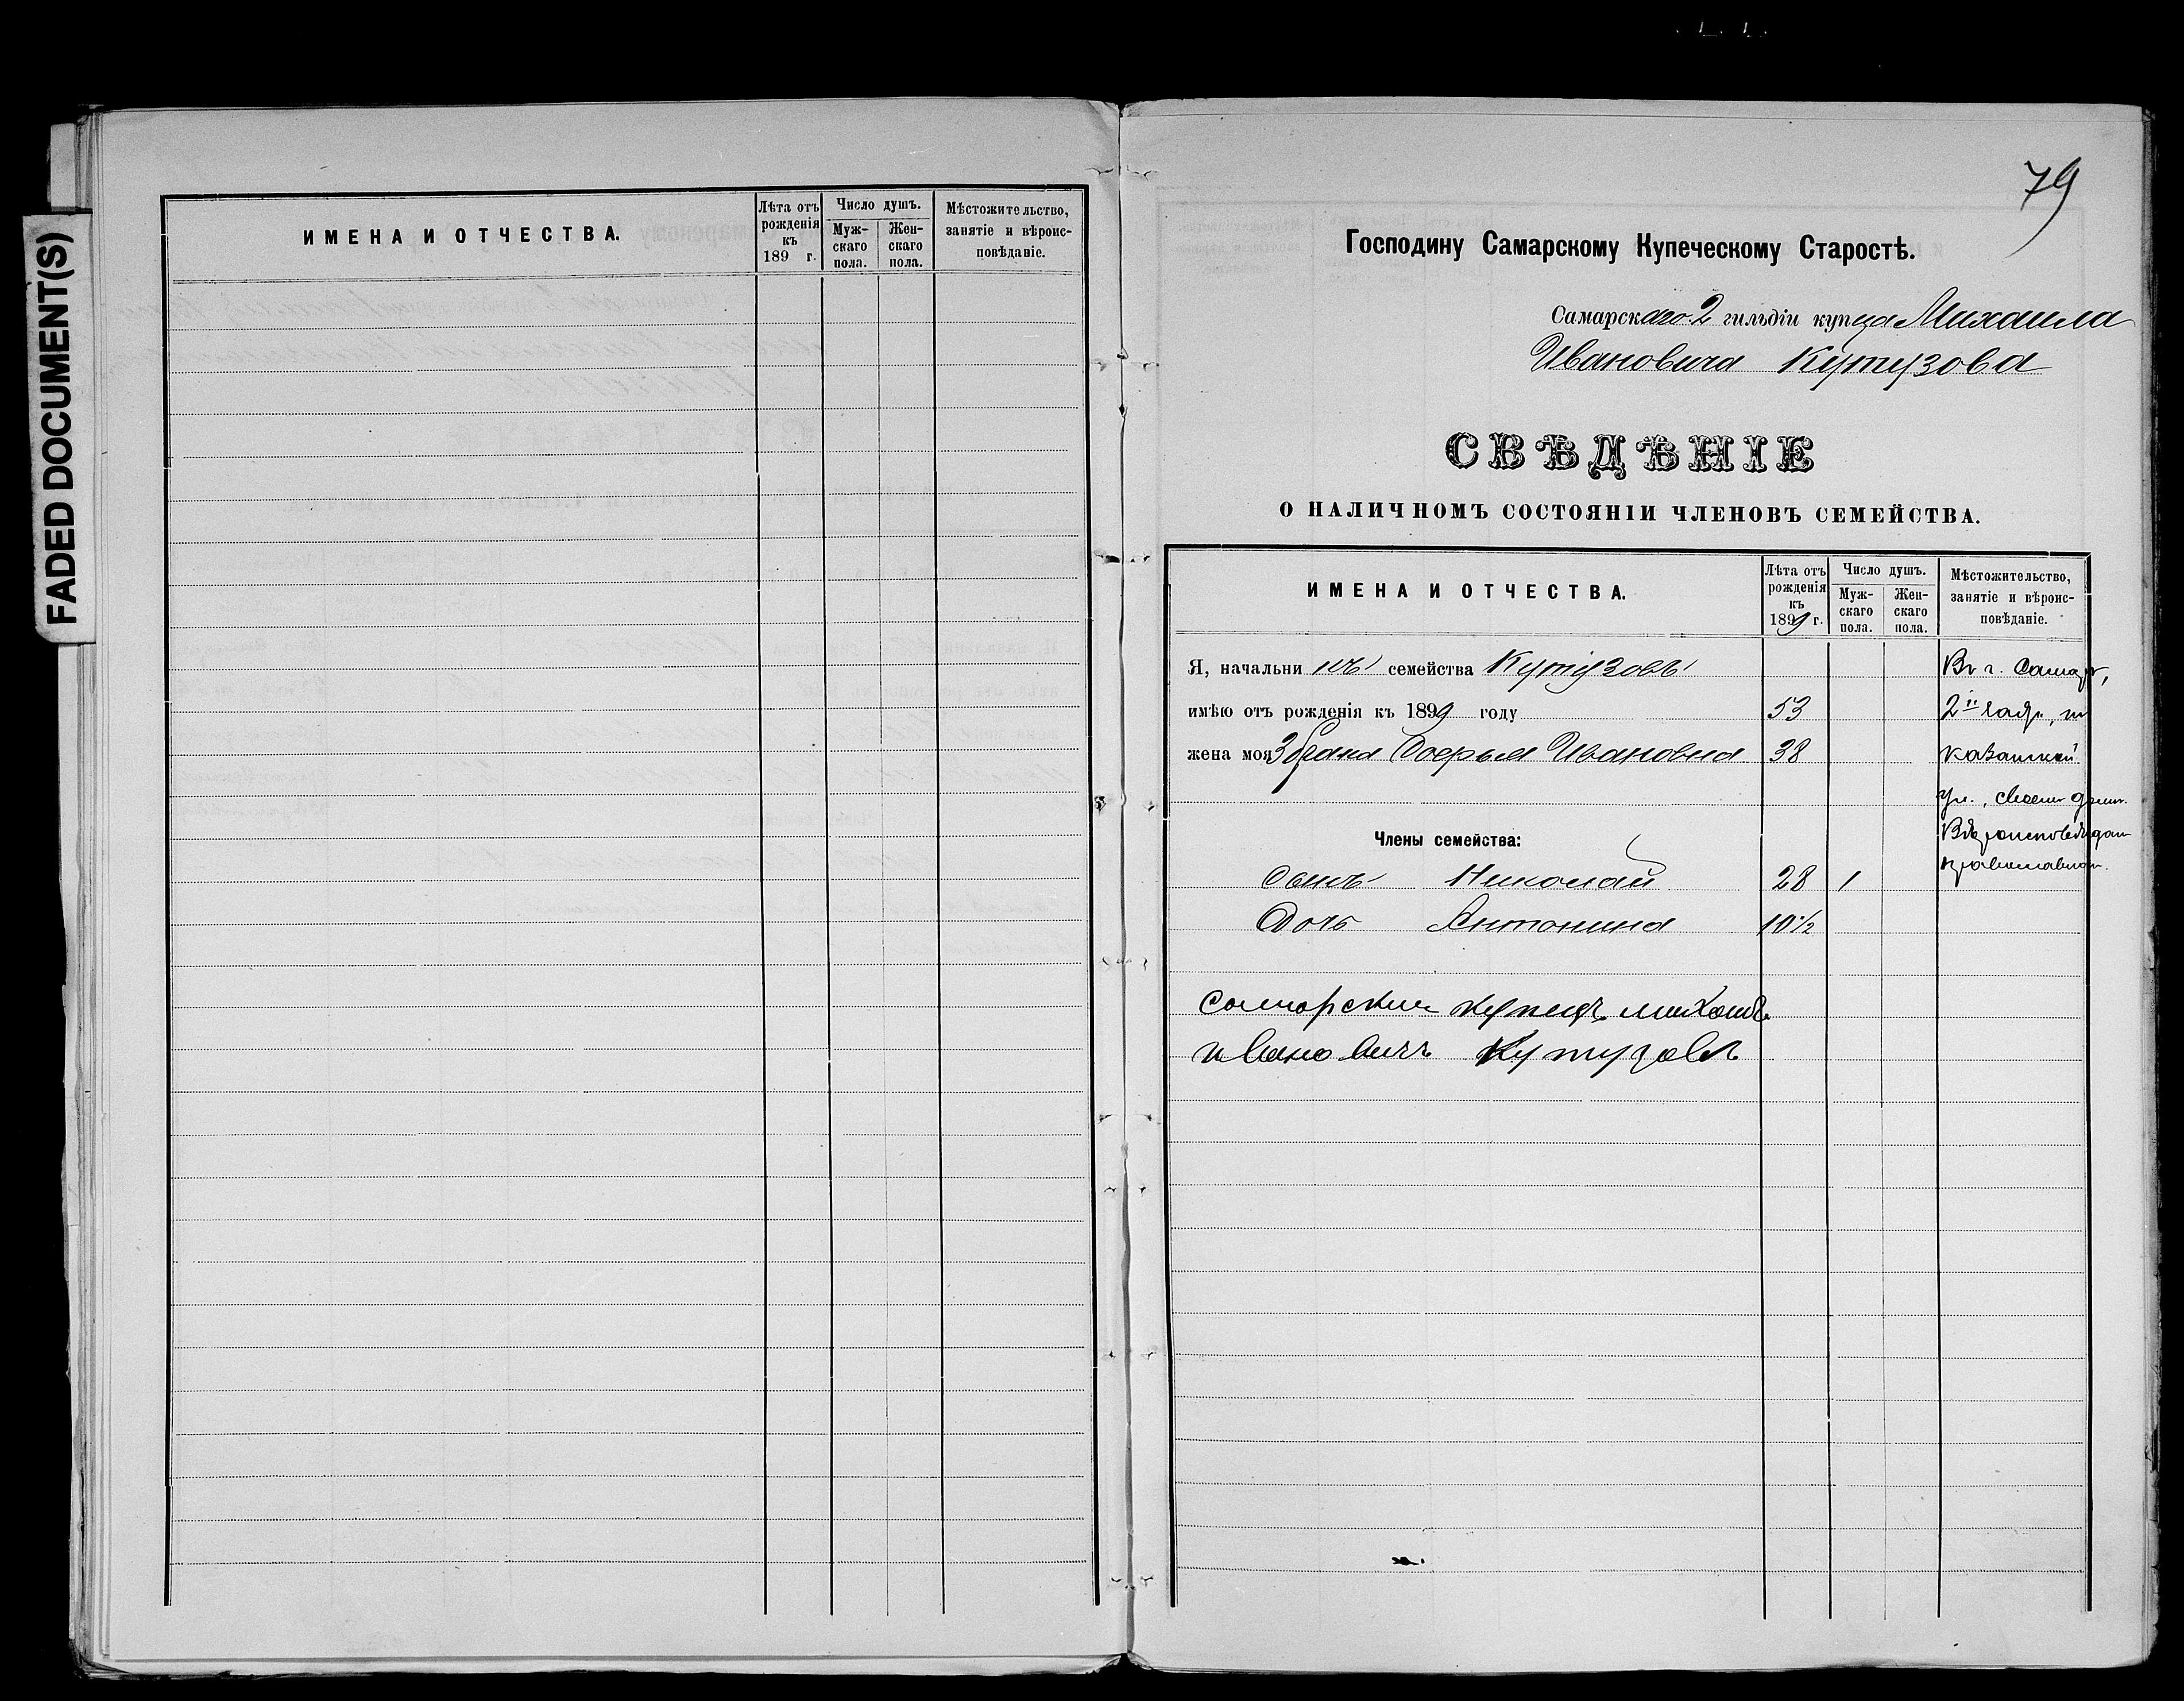 FADED DOCUMENT(S)
ИМЕНА И ОТЧЕСТВА.
Лѣта отъ рожденія къ 189 г.
Число душъ.
Мужскаго пола.
Женскаго пола.
Мѣстожительство, занятіе и вѣроисповѣданіе.
79
Господину Самарскому Купеческому Старостѣ.
Самарскаго 2 гильдіи купца Михаила
Ивановича Кутузова
СВѢДѢНІЕ
О НАЛИЧНОМЪ СОСТОЯНІИ ЧЛЕНОВЪ СЕМЕЙСТВА.
ИМЕНА И ОТЧЕСТВА.
Лѣта отъ рожденія къ 1899 г.
Число душъ.
Мужскаго пола.
Женскаго пола.
Мѣстожительство, занятіе и вѣроисповѣданіе.
Я, начальникъ семейства Кутузовъ Въ г. Самарѣ,
имѣю отъ рожденія къ 1899 году 53 2й части, по
жена моя 3 брака Софья Ивановна 38 Казанской
ул., своем домѣ.
Вѣроисповѣдан
Члены семейства: православнаго.
Сынъ Николай 28 1
Дочь Антонина 10 1/2
Самарский купецъ михаилъ
ивановичъ Кутузовъ